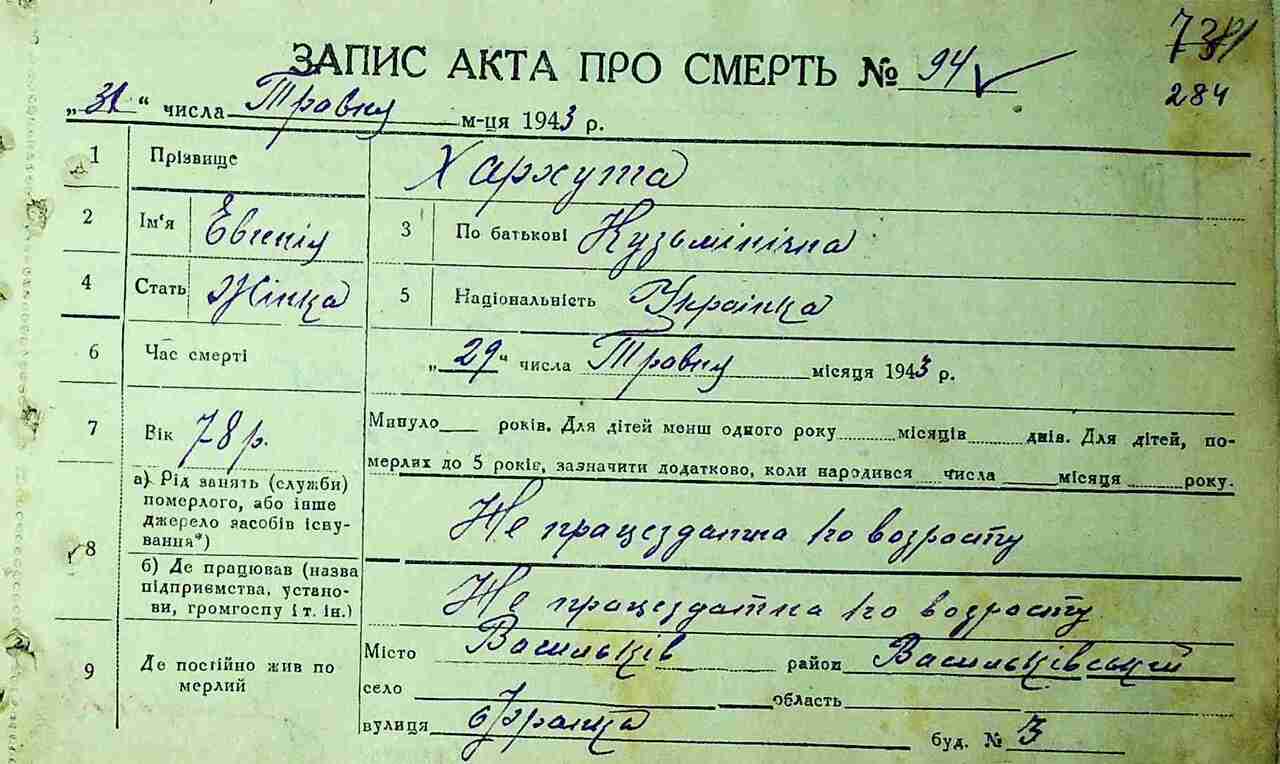 ЗАПИС АКТА ПРО СМЕРТЬ № 94
284
„31“ числа Травня м-ця 1943 р.
1 Прізвище Хархута
2 Ім'я Євгенія 3 По батькові Кузьмінічна
4 Стать Жінка 5 Національність Українка
6 Час смерті „29“ числа Травня місяця 1943 р.
7 Вік 78 р. Минуло ___ років. Для дітей менш одного року ........ місяців ........ днів. Для дітей, по-
мерлих до 5 років, зазначити додатково, коли народився ___ числа ___ місяця ........ року.
8 а) Рід занять (служби)
померлого, або інше
джерело засобів існу-
вання*) Не працездатна по возрасту
б) Де працював (назва
підприємства, устано-
ви, громгоспу і т. ін.) Не працездатна по возрасту
9 Де постійно жив по
мерлий
Місто Васильків район Васильківський
село ___ область ___
вулиця буд. № 3